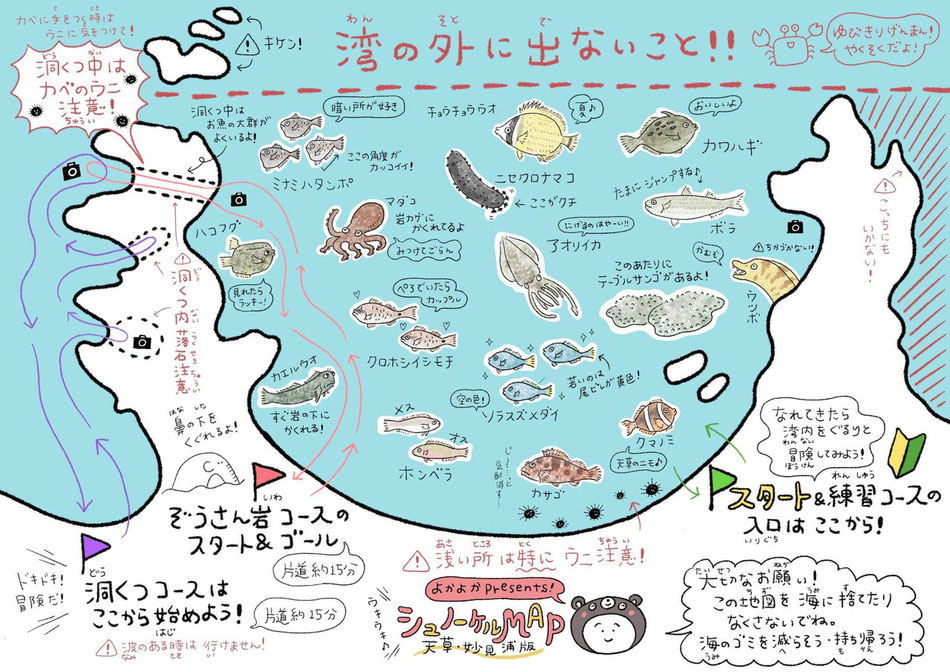 カベに手をつく時は
ウニに気をつけて!
洞くつ中は
カベのウニ
注意!
キケン!
湾の外に出ないこと!!
ゆびきりげんまん!
やくそくだよ!
洞くつ中は
お魚の大群が
よくいるよ!
暗い所が好き
ここの角度が
カッコイイ!
ミナミハタンポ
チョウチョウウオ
夏♪
おいしいよ
カワハギ
ニセクロナマコ
ここがクチ
たまにジャンプするね♪
ボラ
マダコ
岩カゲに
かくれてるよ
みつけてごらん
ハコフグ
見れたら
ラッキー!
にげるのはやーい!!
アオリイカ
ちかづかない!!
かむぞ
ウツボ
こっちにも
いかない!
このあたりに
テーブルサンゴがあるよ!
ペアでいたら
カップル
クロホシイシモチ
洞くつ内落石注意
カエルウオ
すぐ岩の下に
かくれる!
空の色!
ソラスズメダイ
若いのは
尾ビレが黄色!
メス
オス
ホンベラ
クマノミ
天草のニモ♪
じ〜っと
気配消す
カサゴ
鼻の下を
くぐれるよ!
なれてきたら
湾内をぐるりと
冒険してみよう!
ぞうさん岩コースの
スタート&ゴール
片道約15分
スタート&練習コースの
入口はここから!
ドキドキ!
冒険だ!
洞くつコースは
ここから始めよう!
片道約15分
波のある時は行けません!
浅い所は特にウニ注意!
よかよかpresents!
シュノーケルMAP
天草・妙見浦版
ウキウキ♪
大切なお願い!
この地図を海に捨てたり
なくさないでね。
海のゴミを減らそう・持ち帰ろう!